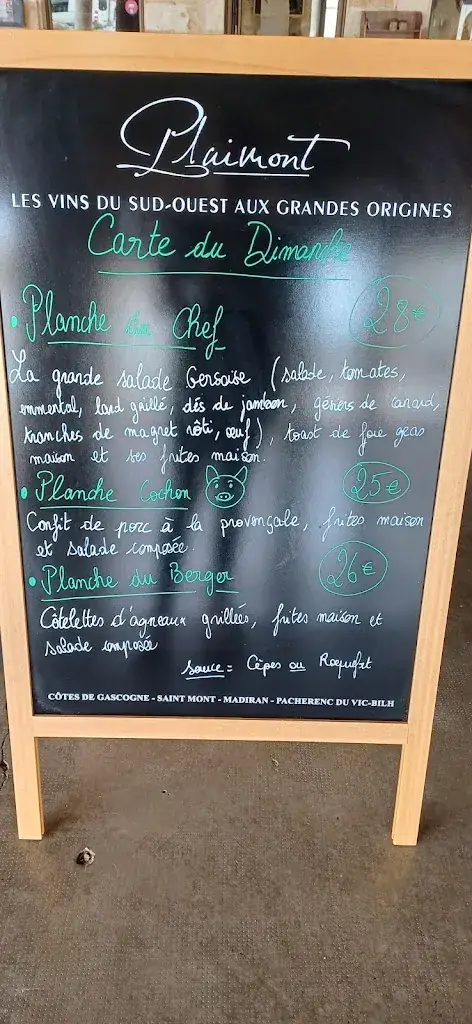 Plaimont
LES VINS DU SUD-OUEST AUX GRANDES ORIGINES
Carte du Dimanche
• Planche du Chef 28€
La grande salade Gersoise (salade, tomates,
emmental, lard grillé, dés de jambon, gésiers de canard,
tranches de magret rôti, œuf), toast de foie gras
maison et ses frites maison.
• Planche Cochon 25€
Confit de porc à la provençale, frites maison
et salade composée.
• Planche du Berger 26€
Côtelettes d'agneaux grillées, frites maison et
salade composée
sauce = Cèpes ou Roquefort
CÔTES DE GASCOGNE - SAINT MONT - MADIRAN - PACHERENC DU VIC-BILH